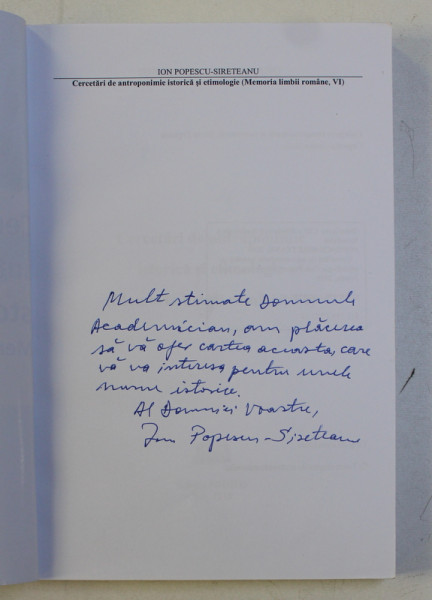 ION POPESCU-SIRETEANU
Cercetări de antroponimie istorică și etimologie (Memoria limbii române, VI)
Mult stimate Domnule
Academician, am plăcerea
să vă ofer cartea aceasta, care
vă va interesa pentru unele
nume istorice.
Al Domniei Voastre,
Ion Popescu-Sireteanu